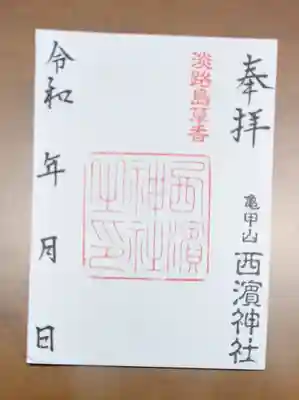 奉拝
亀甲山 西濱神社
淡路島草香
西濱
神社
之印
令和 年 月 日